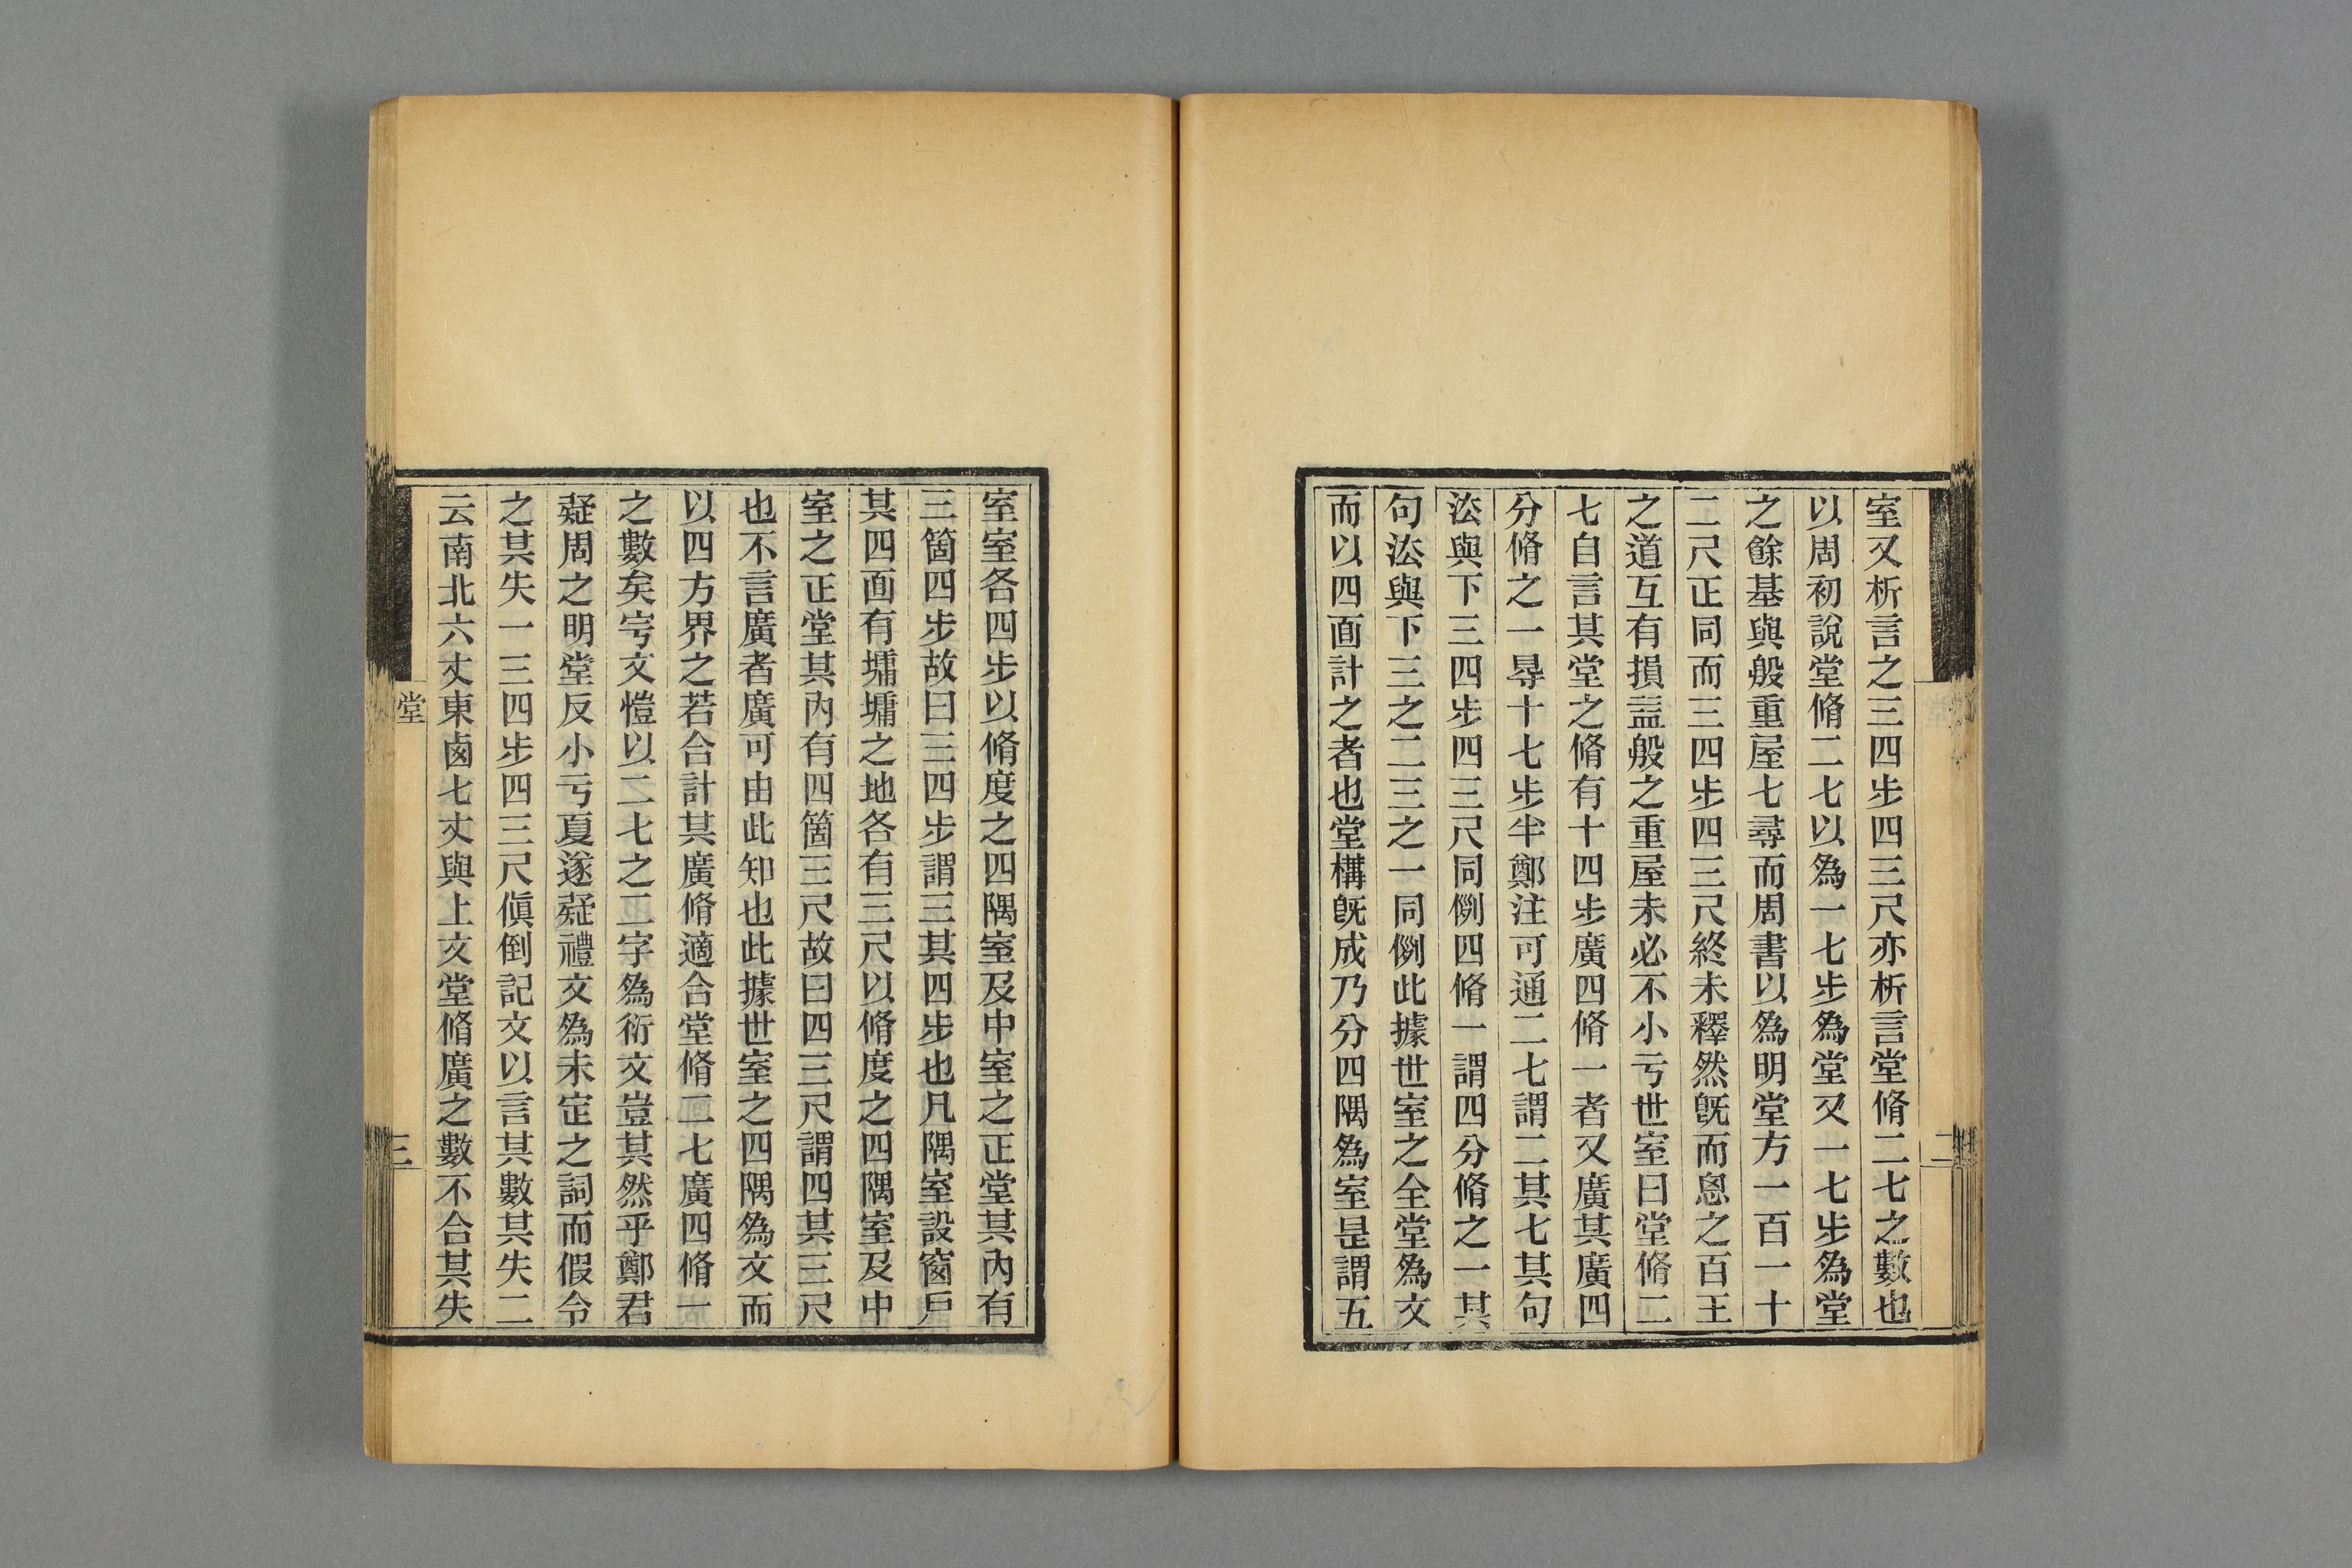 室又析言之三四步四三尺亦析言堂脩二七之數也
以周初說堂脩二七以為一七步為堂又一七步為堂
之餘基與般重屋七尋而周書以為明堂方一百一十
二尺正同而三四步四三尺終未釋然旣而恖之百王
之道互有損益般之重屋未必不小亏世室曰堂脩二
七自言其堂之脩有十四步廣四脩一者又廣其廣四
分脩之一㝷十七步半鄭注可通二七謂二其七其句
法與下三四步四三尺同例四脩一謂四分脩之一其
句法與下三之二三之一同例此據世室之全堂為文
而以四面計之者也堂構旣成乃分四隅為室是謂五
二
室室各四步以脩度之四隅室及中室之正堂其內有
三箇四步故曰三四步謂三其四步也凡隅室設窗戶
其四面有墉墉之地各有三尺以脩度之四隅室及中
室之正堂其內有四箇三尺故曰四三尺謂四其三尺
也不言廣者廣可由此知也此據世室之四隅為文而
以四方界之若合計其廣脩適合堂脩二七廣四脩一
之數矣寍文愷以二七之二字為衍文豈其然乎鄭君
疑周之明堂反小亏夏遂疑禮文為未定之詞而假令
之其失一三四步四三尺傎倒記文以言其數其失二
云南北六丈東卥七丈與上文堂脩廣之數不合其失
堂
三